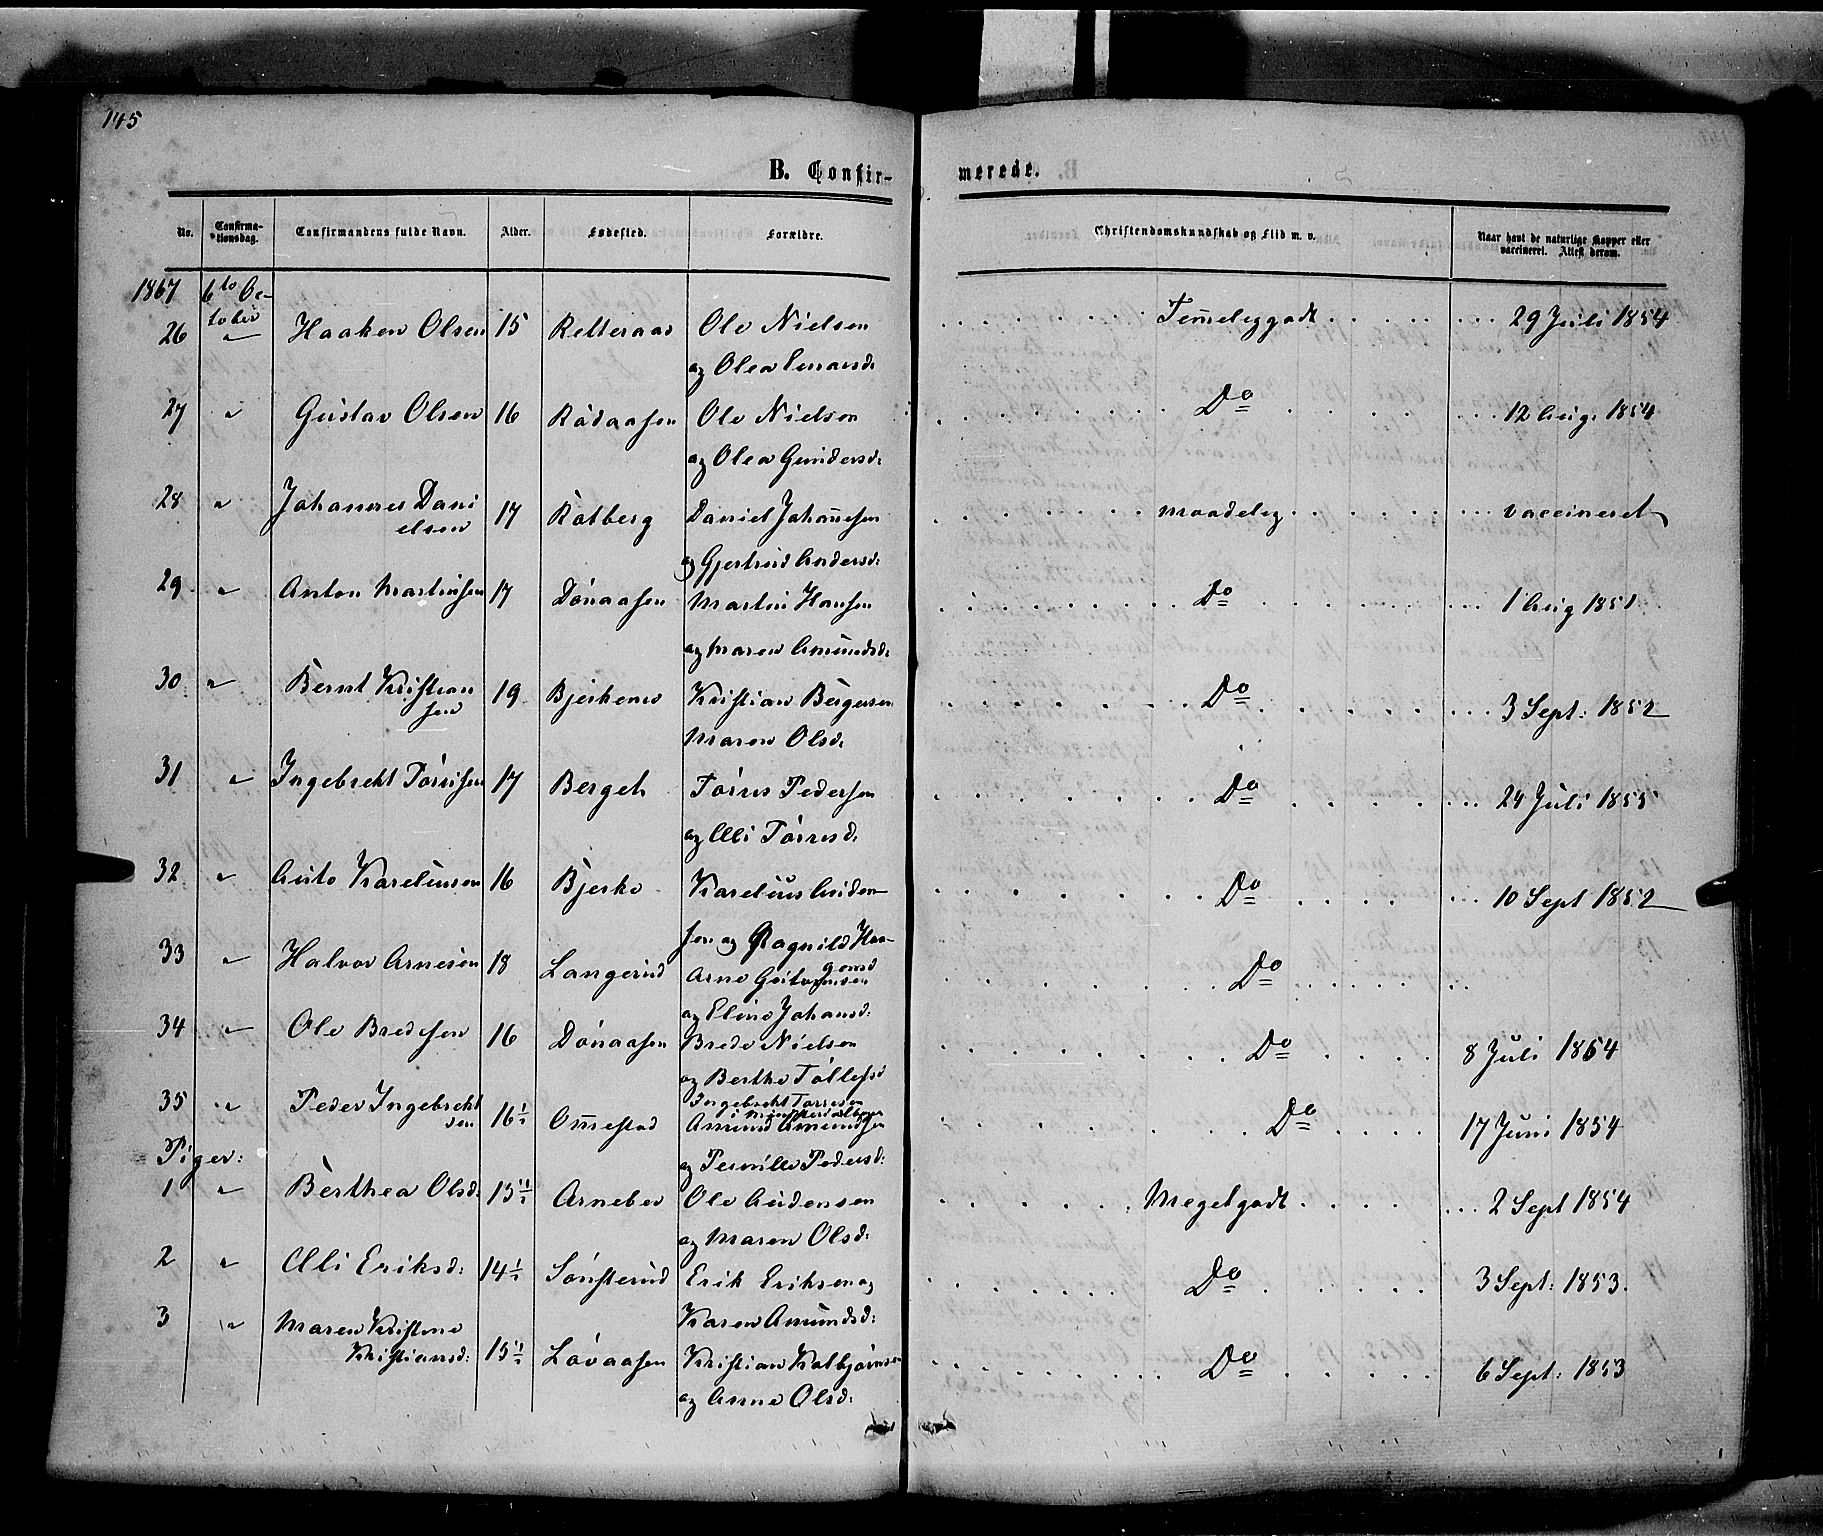 145
B. Confir-
merede.
No.
Confirma-
tionsdag.
Confirmandens fulde Navn.
Alder.
Fødested.
Forældre.
Christendomskundskab og Flid m. v.
Naar havt de naturlige Kopper eller
vaccineret. Attest derom.
1867 6te Oc-
tober
26 " Haaken Olsen 15 Retteraas Ole Nielsen Temeleggodt 29 Juli 1854
og Olea
27 " Gustav Olsen 16 Rødaasen Ole Nielsen Do 12 Aug. 1854
og Olea Gundersd:
28 " Johannes Dani
elsen 17 Kolberg Daniel Johannesen maadeleg vaccineret
og Gjertrud Andersd:
29 " Anton Martinsen 17 Dønaasen Martin Hansen Do 1 Aug 1851
og Maren Amundsd:
30 " Bernt Kristian
sen 19 Bjerkene Kristian Bergersen Do 3 Sept: 1852
Maren Olsd.
31 " Ingebreht Tørrisen 17 Berget Tørris Pedersen Do 24 Juli 1855
og Alli Tørresd:
32 " Guto Kareliusen 16 Bjerke Karelius Anden- Do 10 Sept 1852
sen og Ragnild Haa-
gensd
33 " Halvor Arnesen 18 Langerud Arne Gutormsen Do
og Eline Johansd:
34 " Ole Bredesen 16 Dønaasen Brede Nielsen Do 8 Juli 1864
og Berthe Tollefsd
35 " Peder Ingebreht
sen 16½ Omestad Ingebreht Torresen
Amund Amundsen Do 17 Juni 1854
og Pernille Pedersd:
Piger:
1 " Berthea Olsd: 15½ Arneber Ole Gudensen Megetgodt 2 Sept 1854
og Maren Olsd:
2 " Alli Eriksd: 14½ Sønsterud Erik Eriksen og Do 3 Sept: 1853.
Karen Amundsd:
3 " Maren Kristine
Kristiansd: 15½ Løvaasen Kristian Kolbjørnsen Do 6 Sept: 1853
og Anne Olsd: